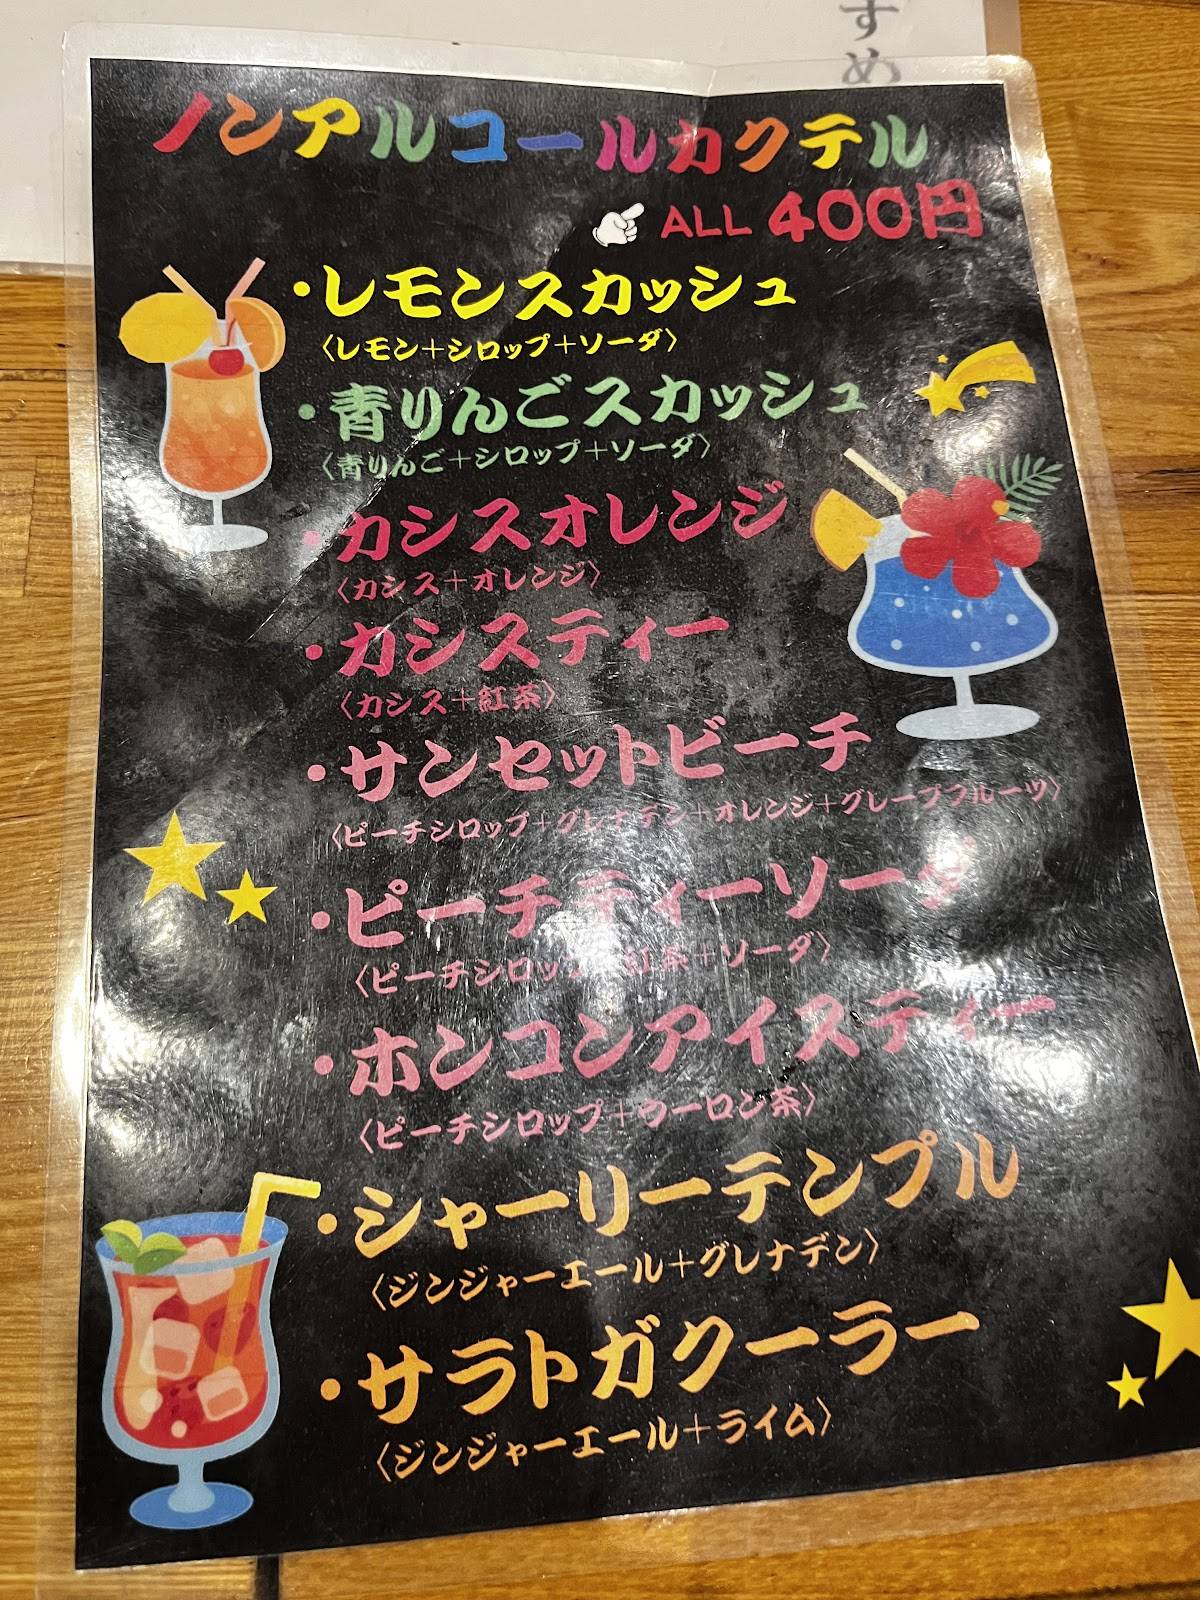 すめ
ノンアルコールカクテル
ALL 400円
・レモンスカッシュ
〈レモン+シロップ+ソーダ〉
・青りんごスカッシュ
〈青りんご+シロップ+ソーダ〉
・カシスオレンジ
〈カシス+オレンジ〉
・カシスティー
〈カシス+紅茶〉
・サンセットビーチ
〈ピーチシロップ+グレナデン+オレンジ+グレープフルーツ〉
・ピーチティーソーダ
〈ピーチシロップ+紅茶+ソーダ〉
・ホンコンアイスティー
〈ピーチシロップ+ウーロン茶〉
・シャーリーテンプル
〈ジンジャーエール+グレナデン〉
・サラトガクーラー
〈ジンジャーエール+ライム〉